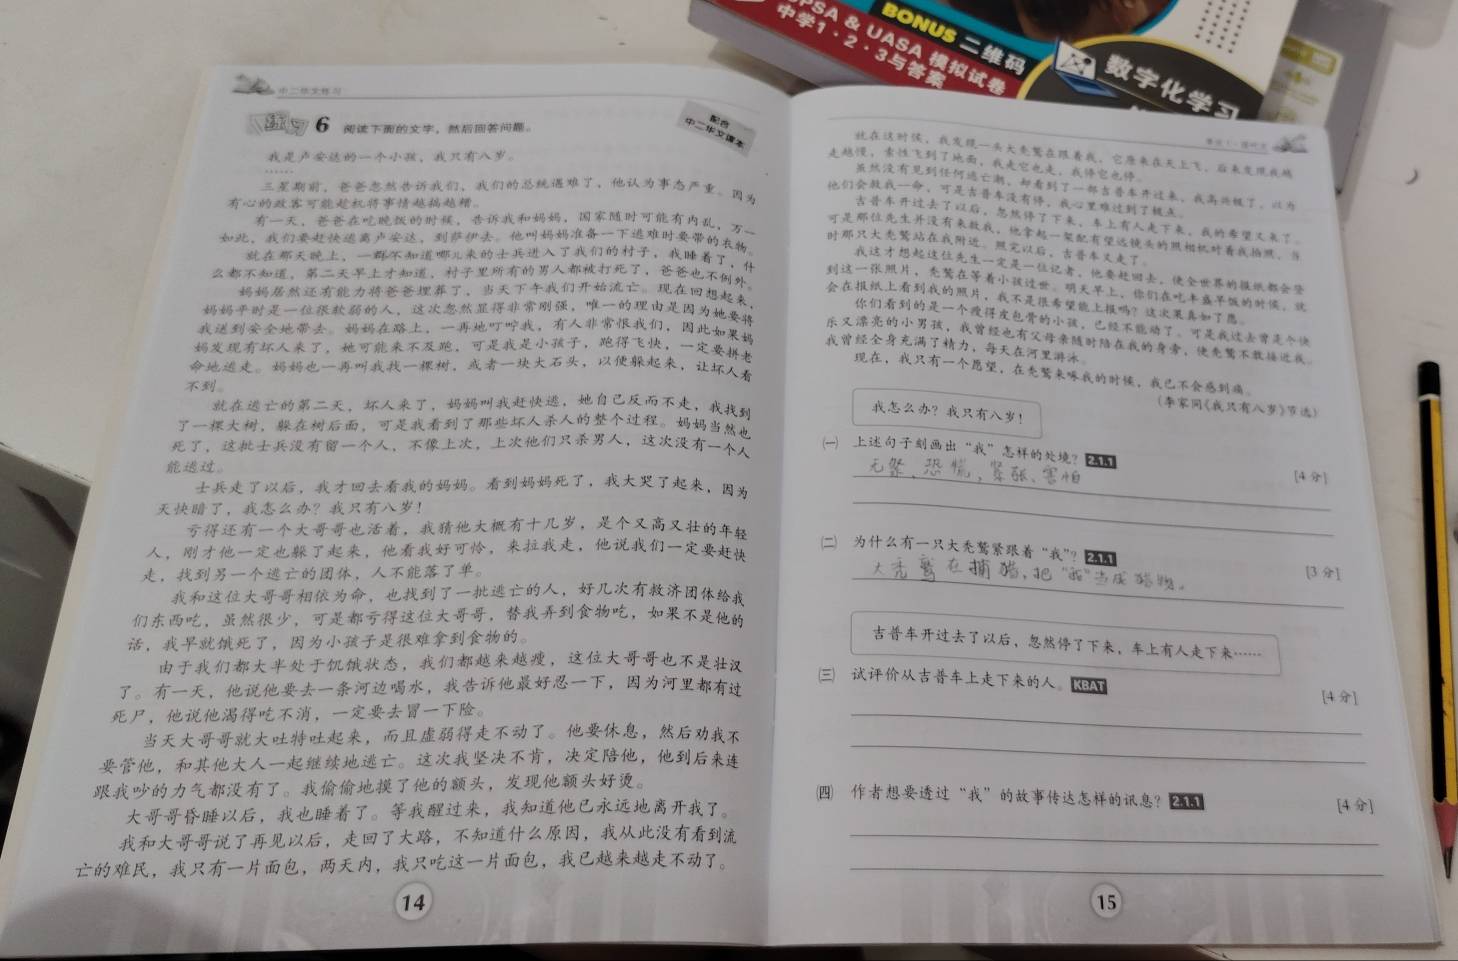 BONUS 二维码
PSA & UASA 模拟试卷
中学1·2·3与答案
数字化学习
中二华文练习
练习 6 阅读下面的文字，然后回答问题。
配合
中二华文课本
我是卢安达的一个小孩，我只有八岁。
……
三星期前，爸爸忽然告诉我们，我们的总统遇难了，他认为事态严重。因为
有心的政客可能趁机将事情越搞越糟。
有一天，爸爸在吃晚饭的时候，告诉我和妈妈，国家随时可能有内乱，万一
如此，我们要赶快逃离卢安达，到萨伊去。他叫妈妈准备一下逃难时要带的衣物。
就在那天晚上，一群不知道哪儿来的士兵进入了我们的村子，我睡着了，什
么都不知道，第二天早上才知道，村子里所有的男人都被打死了，爸爸也不例外。
妈妈居然还有能力将爸爸埋葬了，当天下午我们开始流亡。现在回想起来，
妈妈平时是一位很软弱的人，这次忽然显得非常刚强，唯一的理由是因为她要将
我送到安全地带去。妈妈在路上，一再地叮咛我，有人非常恨我们，因此如果妈
妈发现有坏人来了，她可能来不及跑，可是我是小孩子，跑得飞快，一定要拼老
命地逃走。妈妈也一再叫我找一棵树，或者一块大石头，以便躲起来，让坏人看
不到。
就在逃亡的第二天，坏人来了，妈妈叫我赶快逃，她自己反而不走，我找到
了一棵大树，躲在树后面，可是我看到了那些坏人杀人的整个过程。妈妈当然也
死了，这批士兵没有留一个人，不像上次，上次他们只杀男人，这次没有一个人
能逃过。
士兵走了以后，我才回去看我的妈妈。看到妈妈死了，我大哭了起来，因为
天快暗了，我怎么办？我只有八岁！
亏得还有一个大哥哥也活着，我猜他大概有十几岁，是个又高又壮的年轻
人，刚才他一定也躲了起来，他看我好可怜，来拉我走，他说我们一定要赶快
走，找到另一个逃亡的团体，人不能落了单。
我和这位大哥哥相依为命，也找到了一批逃亡的人，好几次有救济团体给我
们东西吃，虽然很少，可是都亏得这位大哥哥，替我弄到食物吃，如果不是他的
话，我早就饿死了，因为小孩子是很难拿到食物的。
由于我们都大半处于饥饿状态，我们都越来越瘦，这位大哥哥也不是壮汉
了。有一天，他说他要去一条河边喝水，我告诉他最好忍一下，因为河里都有过
死尸，他说他渴得吃不消，一定要去冒一下险。
当天大哥哥就大吐特吐起来，而且虚弱得走不动了。他要休息，然后劝我不
要管他，和其他大人一起继续地逃亡。这次我坚决不肯，决定陪他，他到后来连
跟我吵的力气都没有了。我偷偷地摸了他的额头，发现他额头好烫。
大哥哥昏睡以后，我也睡着了。等我醒过来，我知道他已永远地离开我了。
我和大哥哥说了再见以后，走回了大路，不知道什么原因，我从此没有看到流
亡的难民，我只有一片面包，两天内，我只吃这一片面包，我已越来越走不动了。
14
就在这时候，我发现一头大秃鹫在跟着我，它原来在天上飞，后来发现我越
走越慢，索性飞到了地面，我走它也走，我停它也停。
虽然没有见到任何逃亡潮，却看到了一部吉普车开过来，我高兴极了，以为
他们会救我一命，可是吉普车没有停，我心里难过到了极点。
吉普车开过去了以后，忽然停了下来，车上有人走下来，我的希望又来了。
可是那位先生并没有来救我，他拿起一架配有望远镜头的照相机对着我拍照，当
时那只大秃鹫站在我附近。照完以后，吉普车又走了。
我这才想起这位先生一定是一位记者，他要赶回去，使全世界的报纸都会登
到这一张照片，秃鹫在等着小孩过世。明天早上，你们在吃丰盛早饭的时候，就
会在报纸上看到我的照片，我不是很希望能上报吗？这次果真如了愿。
你们看到的是一个瘦得皮包骨的小孩，已经不能动了。可是我过去曾是个快
乐又漂亮的小男孩，我曾经也有父母亲随时陪在我的身旁，使秃鹫不敢接近我。
我曾经全身充满了精力，每天在河里游泳。
现在，我只有一个愿望，在秃鹫来啄我的时候，我已不会感到痛。
（李家同《我只有八岁》节选）
我怎么办？我只有八岁！
㈠ 上述句子刻画出“我”怎样的处境？ 2.1.1
[4分]
无奈、恐慌、紧张、害怕
㈡ 为什么有一只大秃鹫紧跟着“我”？ 2.1.1
[3分]
大秃鹫在捕猎，把“我”当成猎物。
吉普车开过去了以后，忽然停了下来，车上有人走下来……
㈢ 试评价从吉普车上走下来的人。 KBAT
[4分]
㈣ 作者想要透过“我”的故事传达怎样的讯息？ 2.1.1
[4分]
15